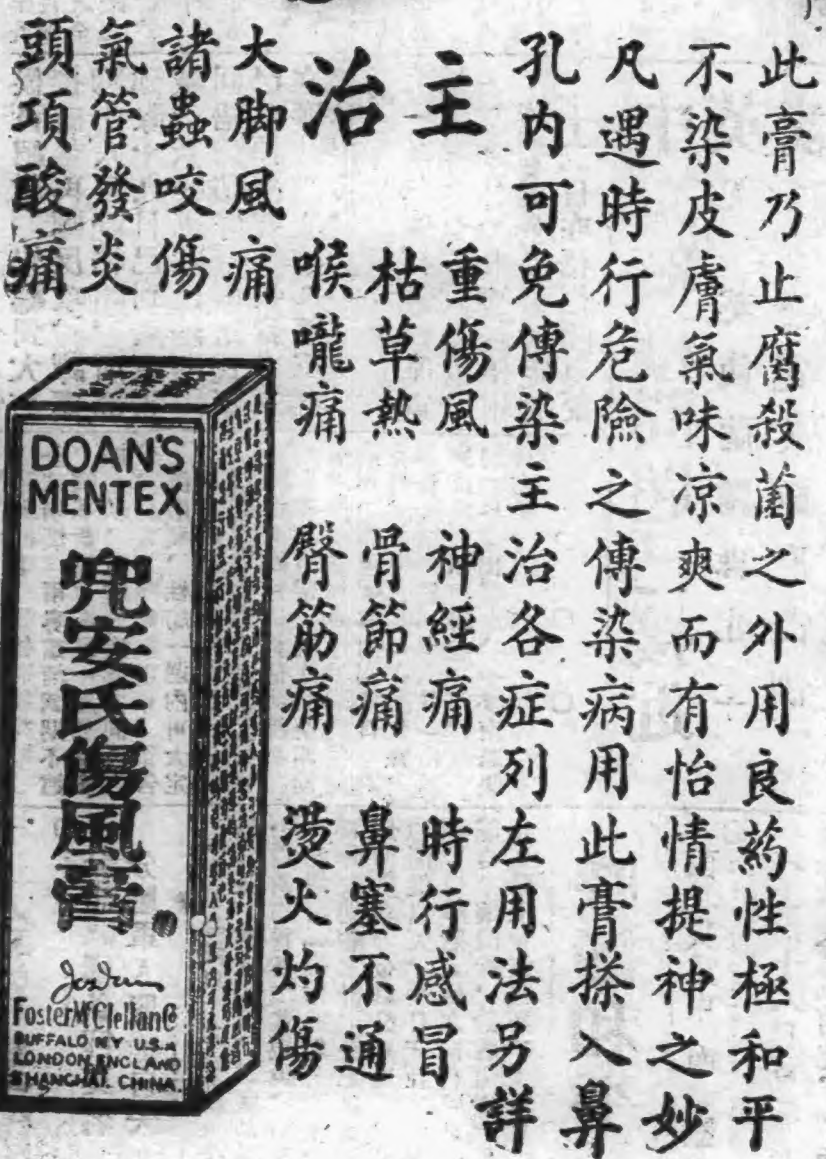 此膏乃止腐殺菌之外用良葯性極和平
不染皮膚氣味凉爽而有怡情提神之妙
凡遇時行危險之傳染病用此膏搽入鼻
孔内可免傳染主治各症列左用法另詳
主治
重傷風
神經痛
時行感冒
枯草熱
骨節痛
鼻塞不通
喉嚨痛
臀筋痛
燙火灼傷
大脚風痛
諸蟲咬傷
氣管發炎
頭項酸痛
DOAN'S
MENTEX
兜安氏傷風膏
Foster McClellan Co
BUFFALO N.Y. U.S.A
LONDON, ENGLAND
SHANGHAI. CHINA.